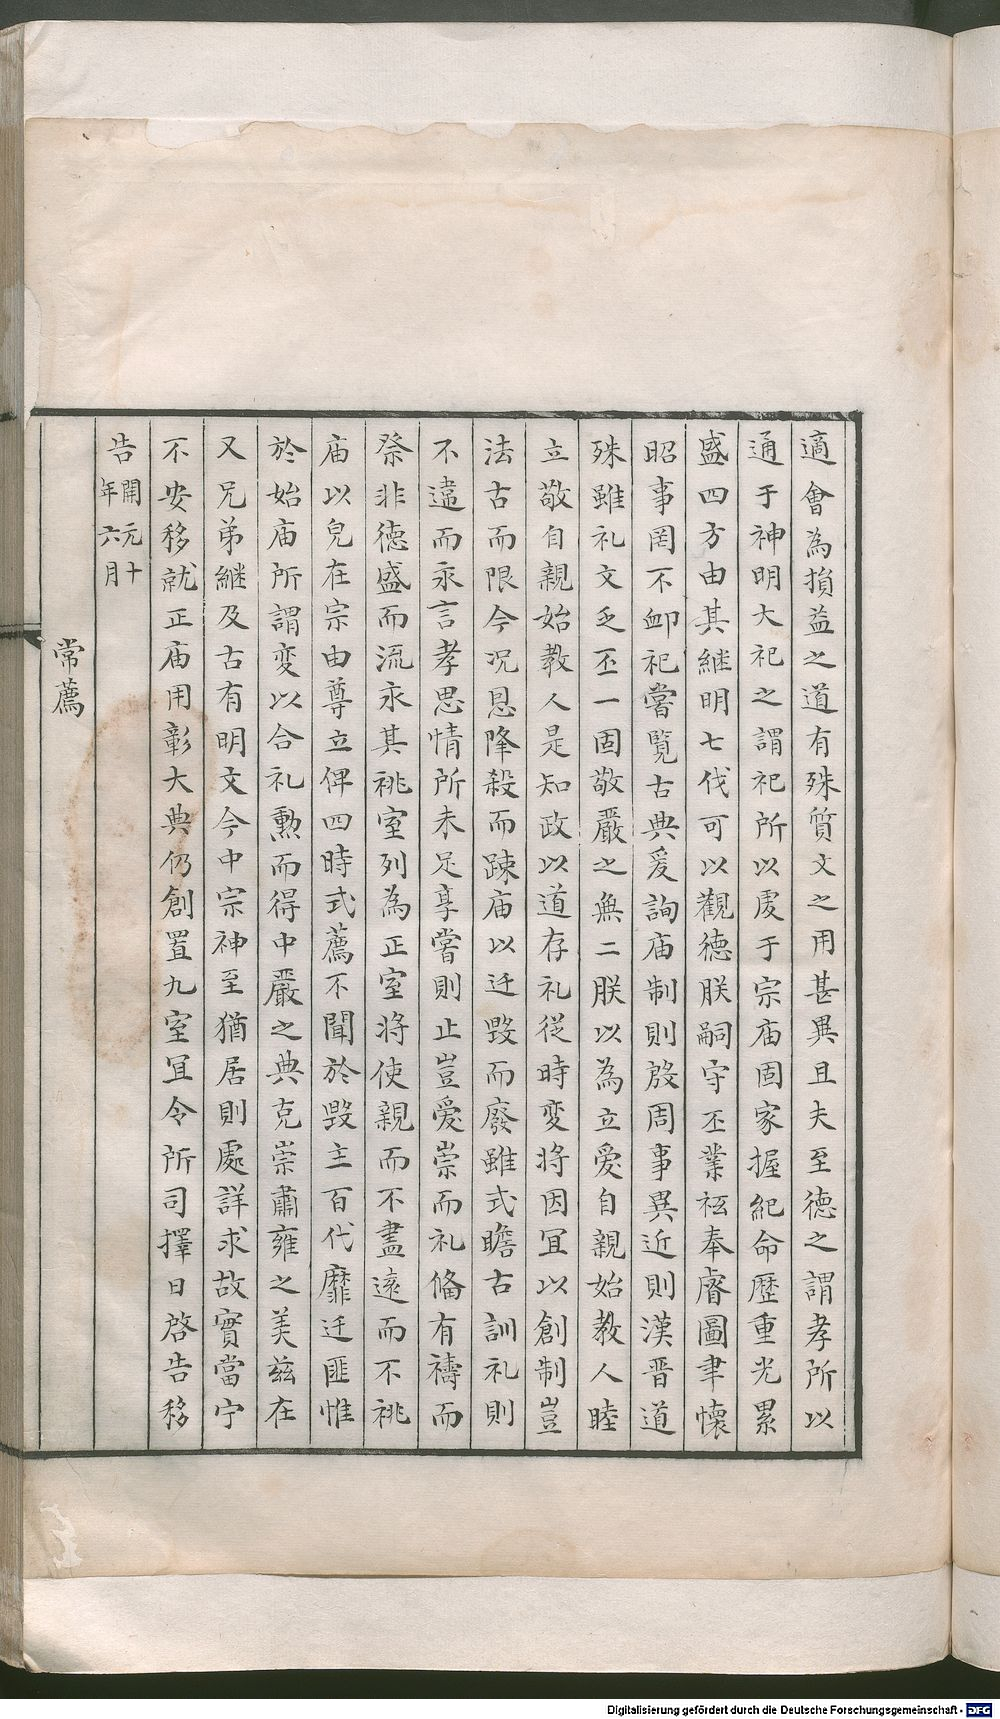 適會為損益之道有殊質文之用甚異且夫至德之謂孝所以
通于神明大祀之謂祀所以虔于宗庙固家握紀命歷重光累
盛四方由其継明七伐可以觀徳朕嗣守丕業祗奉睿圖聿懷
昭事罔不䘏祀嘗覧古典爰詢庙制則殷周事異近則漢晋道
殊雖礼文乏丕一固敬嚴之無二朕以為立愛自親始教人睦
立敬自親始教人是知政以道存礼従時変将因冝以創制豈
法古而限今况恩降殺而踈庙以迁毀而廢雖式瞻古訓礼則
不違而永言孝思情所未足享嘗則止豈愛崇而礼俻有禱而
祭非德盛而流永其祧室列為正室将使親而不盡遠而不祧
庙以皃在宗由尊立俾四時式薦不聞於毀主百代靡迁匪惟
於始庙所謂変以合礼勲而得中嚴之典克崇肅雍之美茲在
又兄弟継及古有明文今中宗神至猶居則處詳求故實當宁
不安移就正庙用彰大典仍創置九室冝令所司擇日啓告移
告開元十年六月
常薦
Digitalisierung gefördert durch die Deutsche Forschungsgemeinschaft - DFG